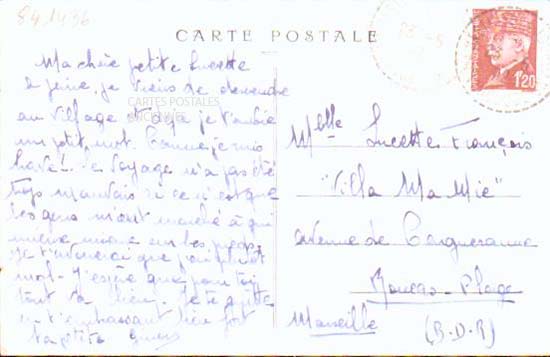 84,1436
CARTE POSTALE
1f20
Ma chère petite Lucette
à peine, je viens de descendre
au village je t'envoie
un petit mot. Comme je suis
le voyage n'a pas été
trop mauvais si ce n'est que
les gens m'ont marché à qui
mieux mieux sur les pieds.
Je t'avouerai que j'ai
mal. J'espère que pour toi
tout va bien. Je te quitte
en t'embrassant bien fort
Ta petite
CARTES POSTALES
ANCIENNES
Melle Lucette François
"Villa Ma Mie"
avenue de
Plage
Marseille (B.D.R)